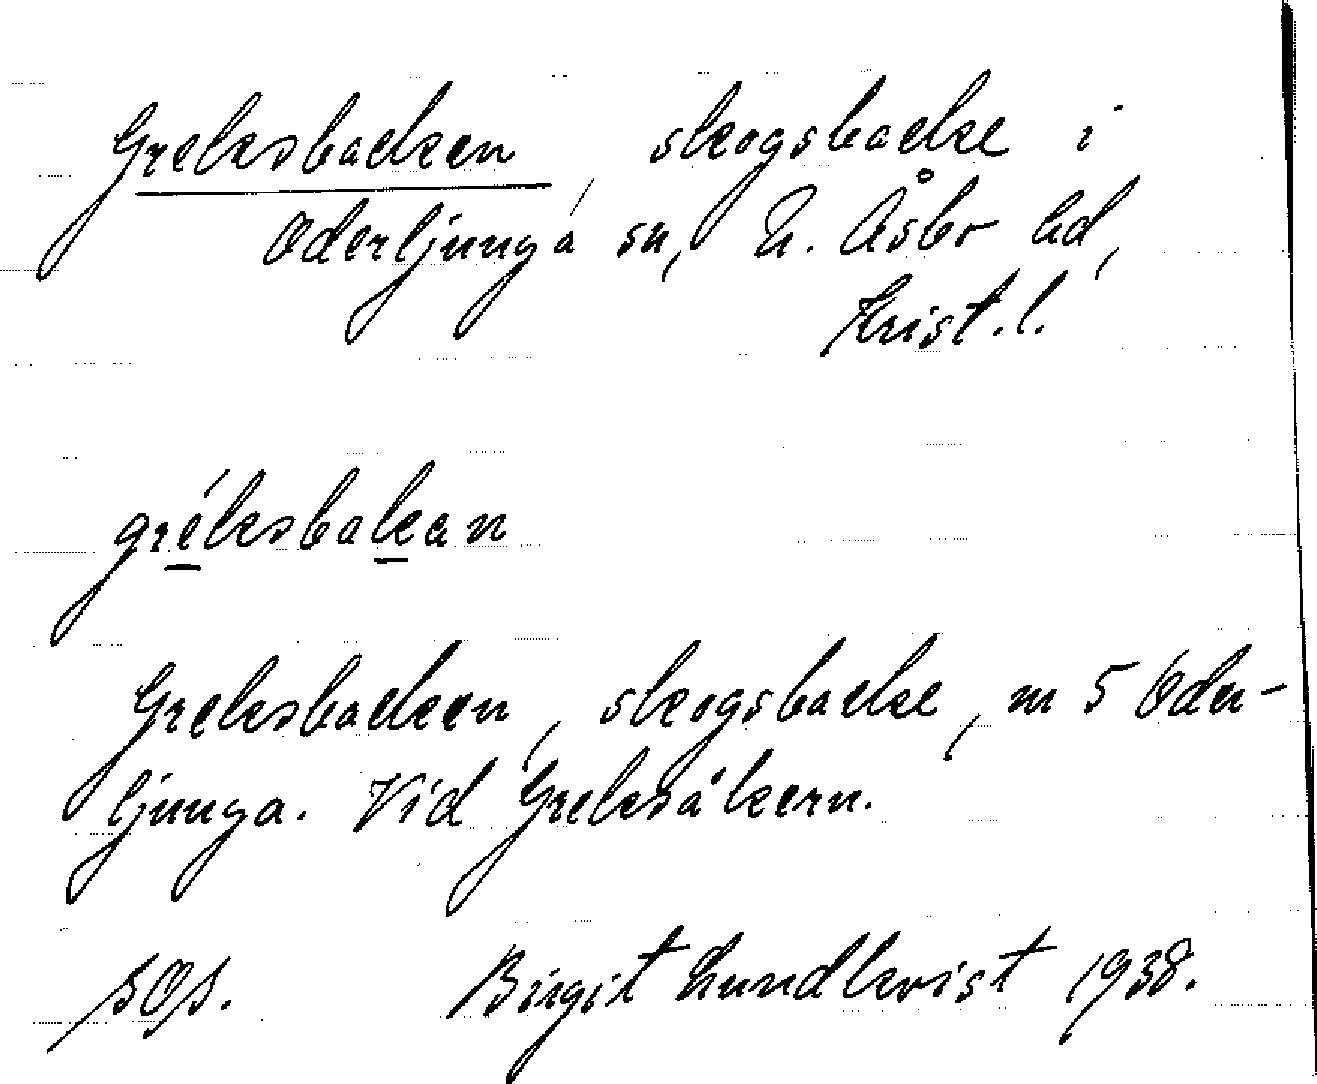 Greksbacken, skogsbacke i
Oderljunga sn, N. Åsbo hd,
Krist. l.
gréksbakan
Greksbacken, skogsbacke, m 5 Oder-
ljunga. Vid Greksåkern.
SOS. Birgit Lundkvist 1938.